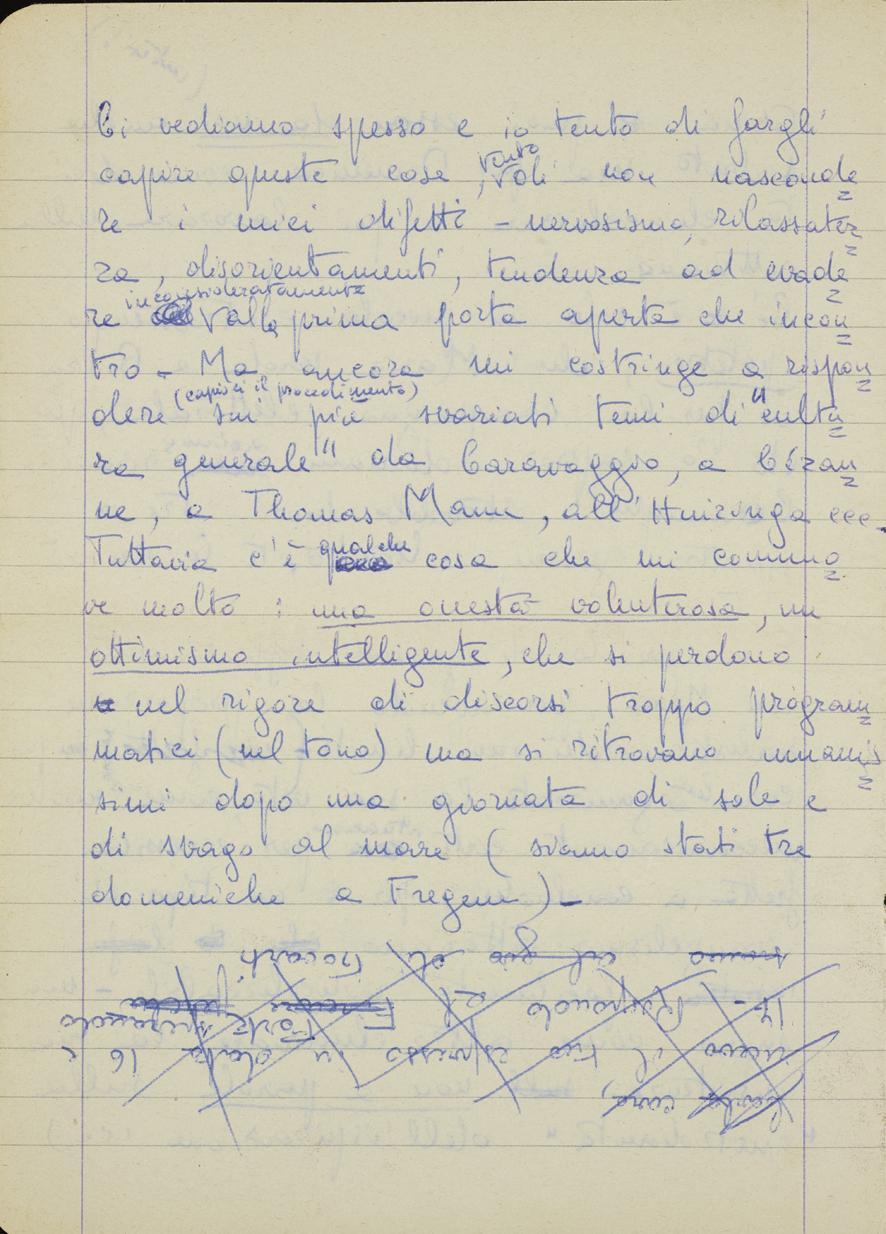 Ci vediamo spesso e io tento di fargli
capire queste cose, tento di non nasconde
re i miei difetti - nervosismo, rilassatez
za, disorientamenti, tendenza ad evade
re inconsideratamente alla prima porta aperta che incon
tro - Ma ancora mi costringe a rispon
dere (capisci il procedimento) sui più svariati temi di "cultu
ra generale" da Caravaggio, a Cézan
ne, a Thomas Mann, all'Huizinga ecc.
Tuttavia c'è qualche cosa che mi commuo
ve molto: una onestà volenterosa, un
ottimismo intelligente, che si perdono
nel rigore di discorsi troppo program
matici (nel tono) ma si ritrovano umanis
simi dopo una giornata di sole e
di svago al mare (siamo stati tre
domeniche a Fregene) -
cara,
ricevo il tuo espresso in data 16 e
14 -